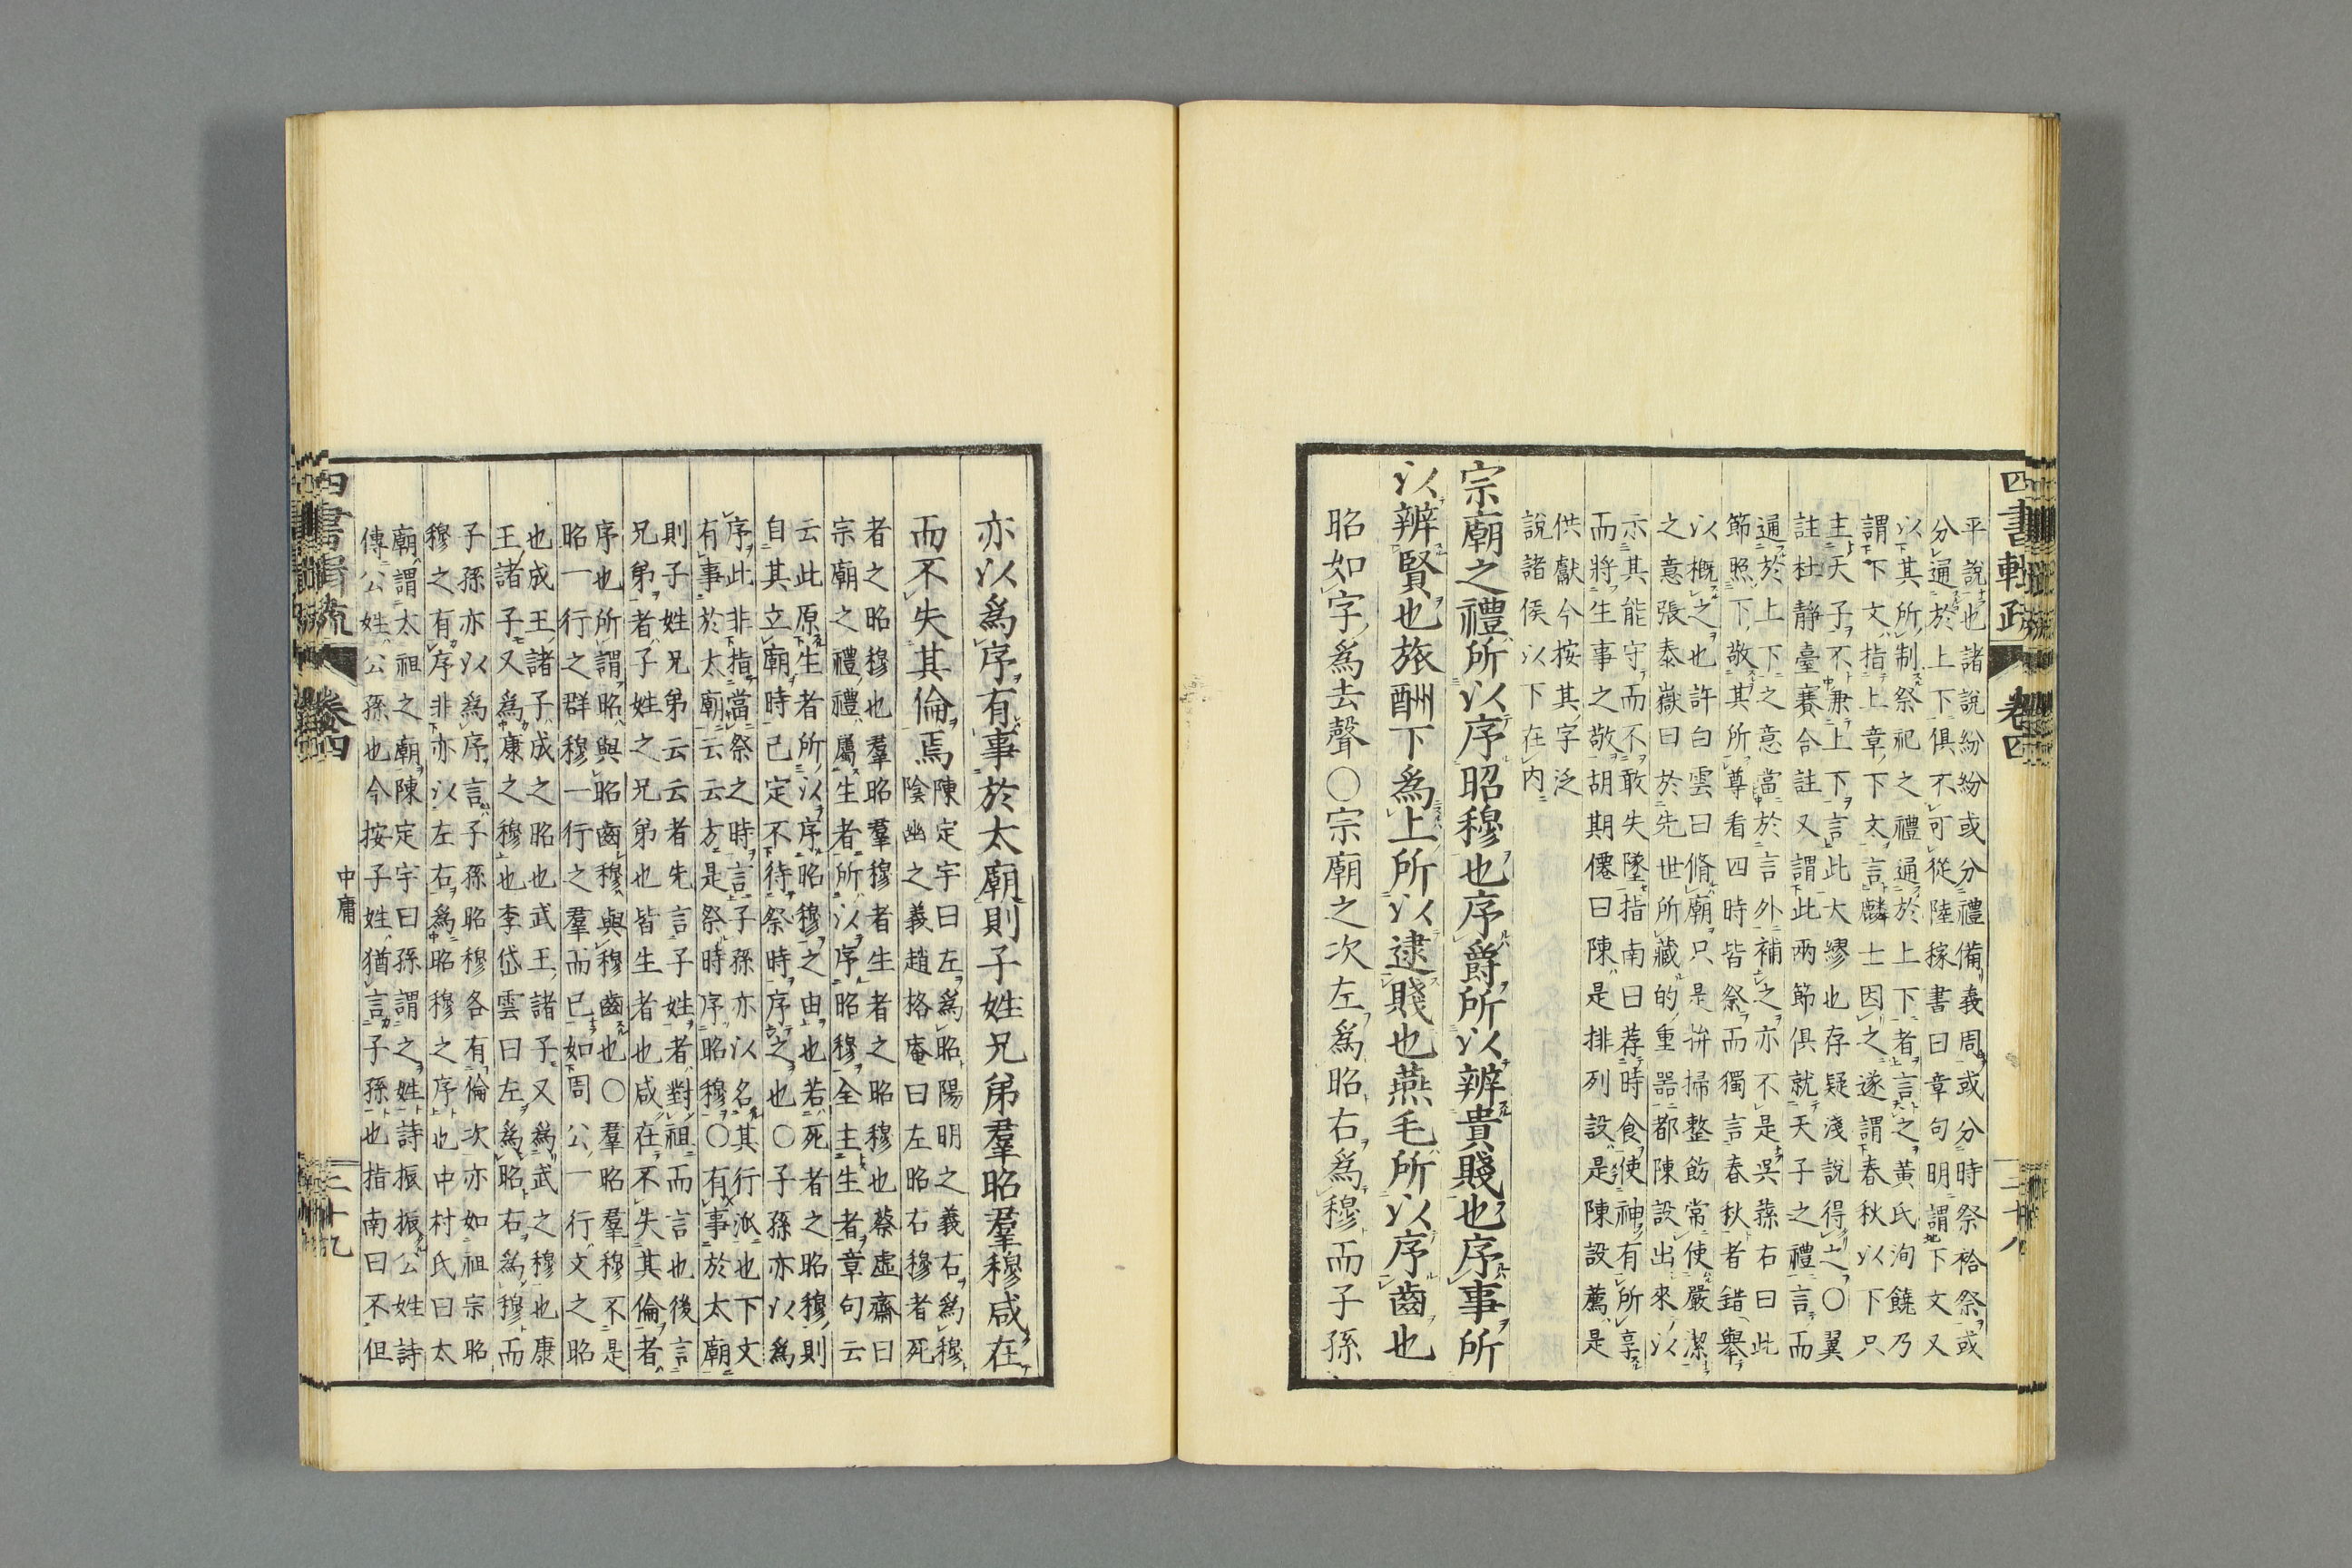 平說也諸說紛紛或分禮備義周或分時祭祫祭或
分通於上下俱不可從陸稼書曰章句明謂下文又
以其所制祭祀之禮通於上下者言之黃氏洵饒乃
謂下文指上章下文言麟士因之遂謂春秋以下只
主天子不兼上下言此大繆也存疑淺說得之〇翼
註杜靜臺賽合註又謂此兩節俱就天子之禮言而
通於上下之意當於言外補之亦不是吳蓀右曰此
節照下敬其所尊看四時皆祭而獨言春秋者錯舉
以概之也許白雲曰脩廟只是拚掃整飭常使嚴潔
之意張泰嶽曰於先世所藏的重器都陳設出來以
示其能守而不敢失墜指南曰荐時食使神有所享
而將生事之敬胡期僊曰陳是排列設是陳設薦是
供獻今按其字泛
說諸侯以下在内
宗廟之禮所以序昭穆也序爵所以辨貴賤也序事所
以辨賢也旅酬下爲上所以逮賤也燕毛所以序齒也
昭如字爲去聲〇宗廟之次左爲昭右爲穆而子孫
四書輯疏 卷四 三十八
亦以爲序有事於太廟則子姓兄弟羣昭羣穆咸在
而不失其倫焉
陳定宇曰左爲昭陽明之義右爲穆
陰幽之義趙格庵曰左昭右穆者死
者之昭穆也羣昭羣穆者生者之昭穆也蔡虛齋曰
宗廟之禮禮屬生者所以序昭穆全主生者章句云
云此原生者所以序昭穆之由也若死者之昭穆則
自其立廟時已定不待祭時序之也〇子孫亦以爲
序此非指當祭之時言子孫亦以名其行派也下文
有事於太廟云云方是祭時序昭穆〇有事於太廟
則子姓兄弟云云者先言子姓者對祖而言也後言
兄弟者子姓之兄弟也皆生者也咸在不失其倫者
序也所謂昭與昭齒穆與穆齒也〇羣昭羣穆不是
昭一行之群穆一行之羣而已如周公一行文之昭
也成王諸子成之昭也武王諸子又爲武之穆也康
王諸子又爲康之穆也李岱雲曰左爲昭右爲穆而
子孫亦以爲序言子孫昭穆各有倫次亦如祖宗昭
穆之有序非亦以左右爲昭穆之序也中村氏曰太
廟謂太祖之廟陳定宇曰孫謂之姓詩振振公姓詩
傳公姓公孫也今按子姓猶言子孫也指南曰不但
四書輯疏 卷四 中庸 三十九